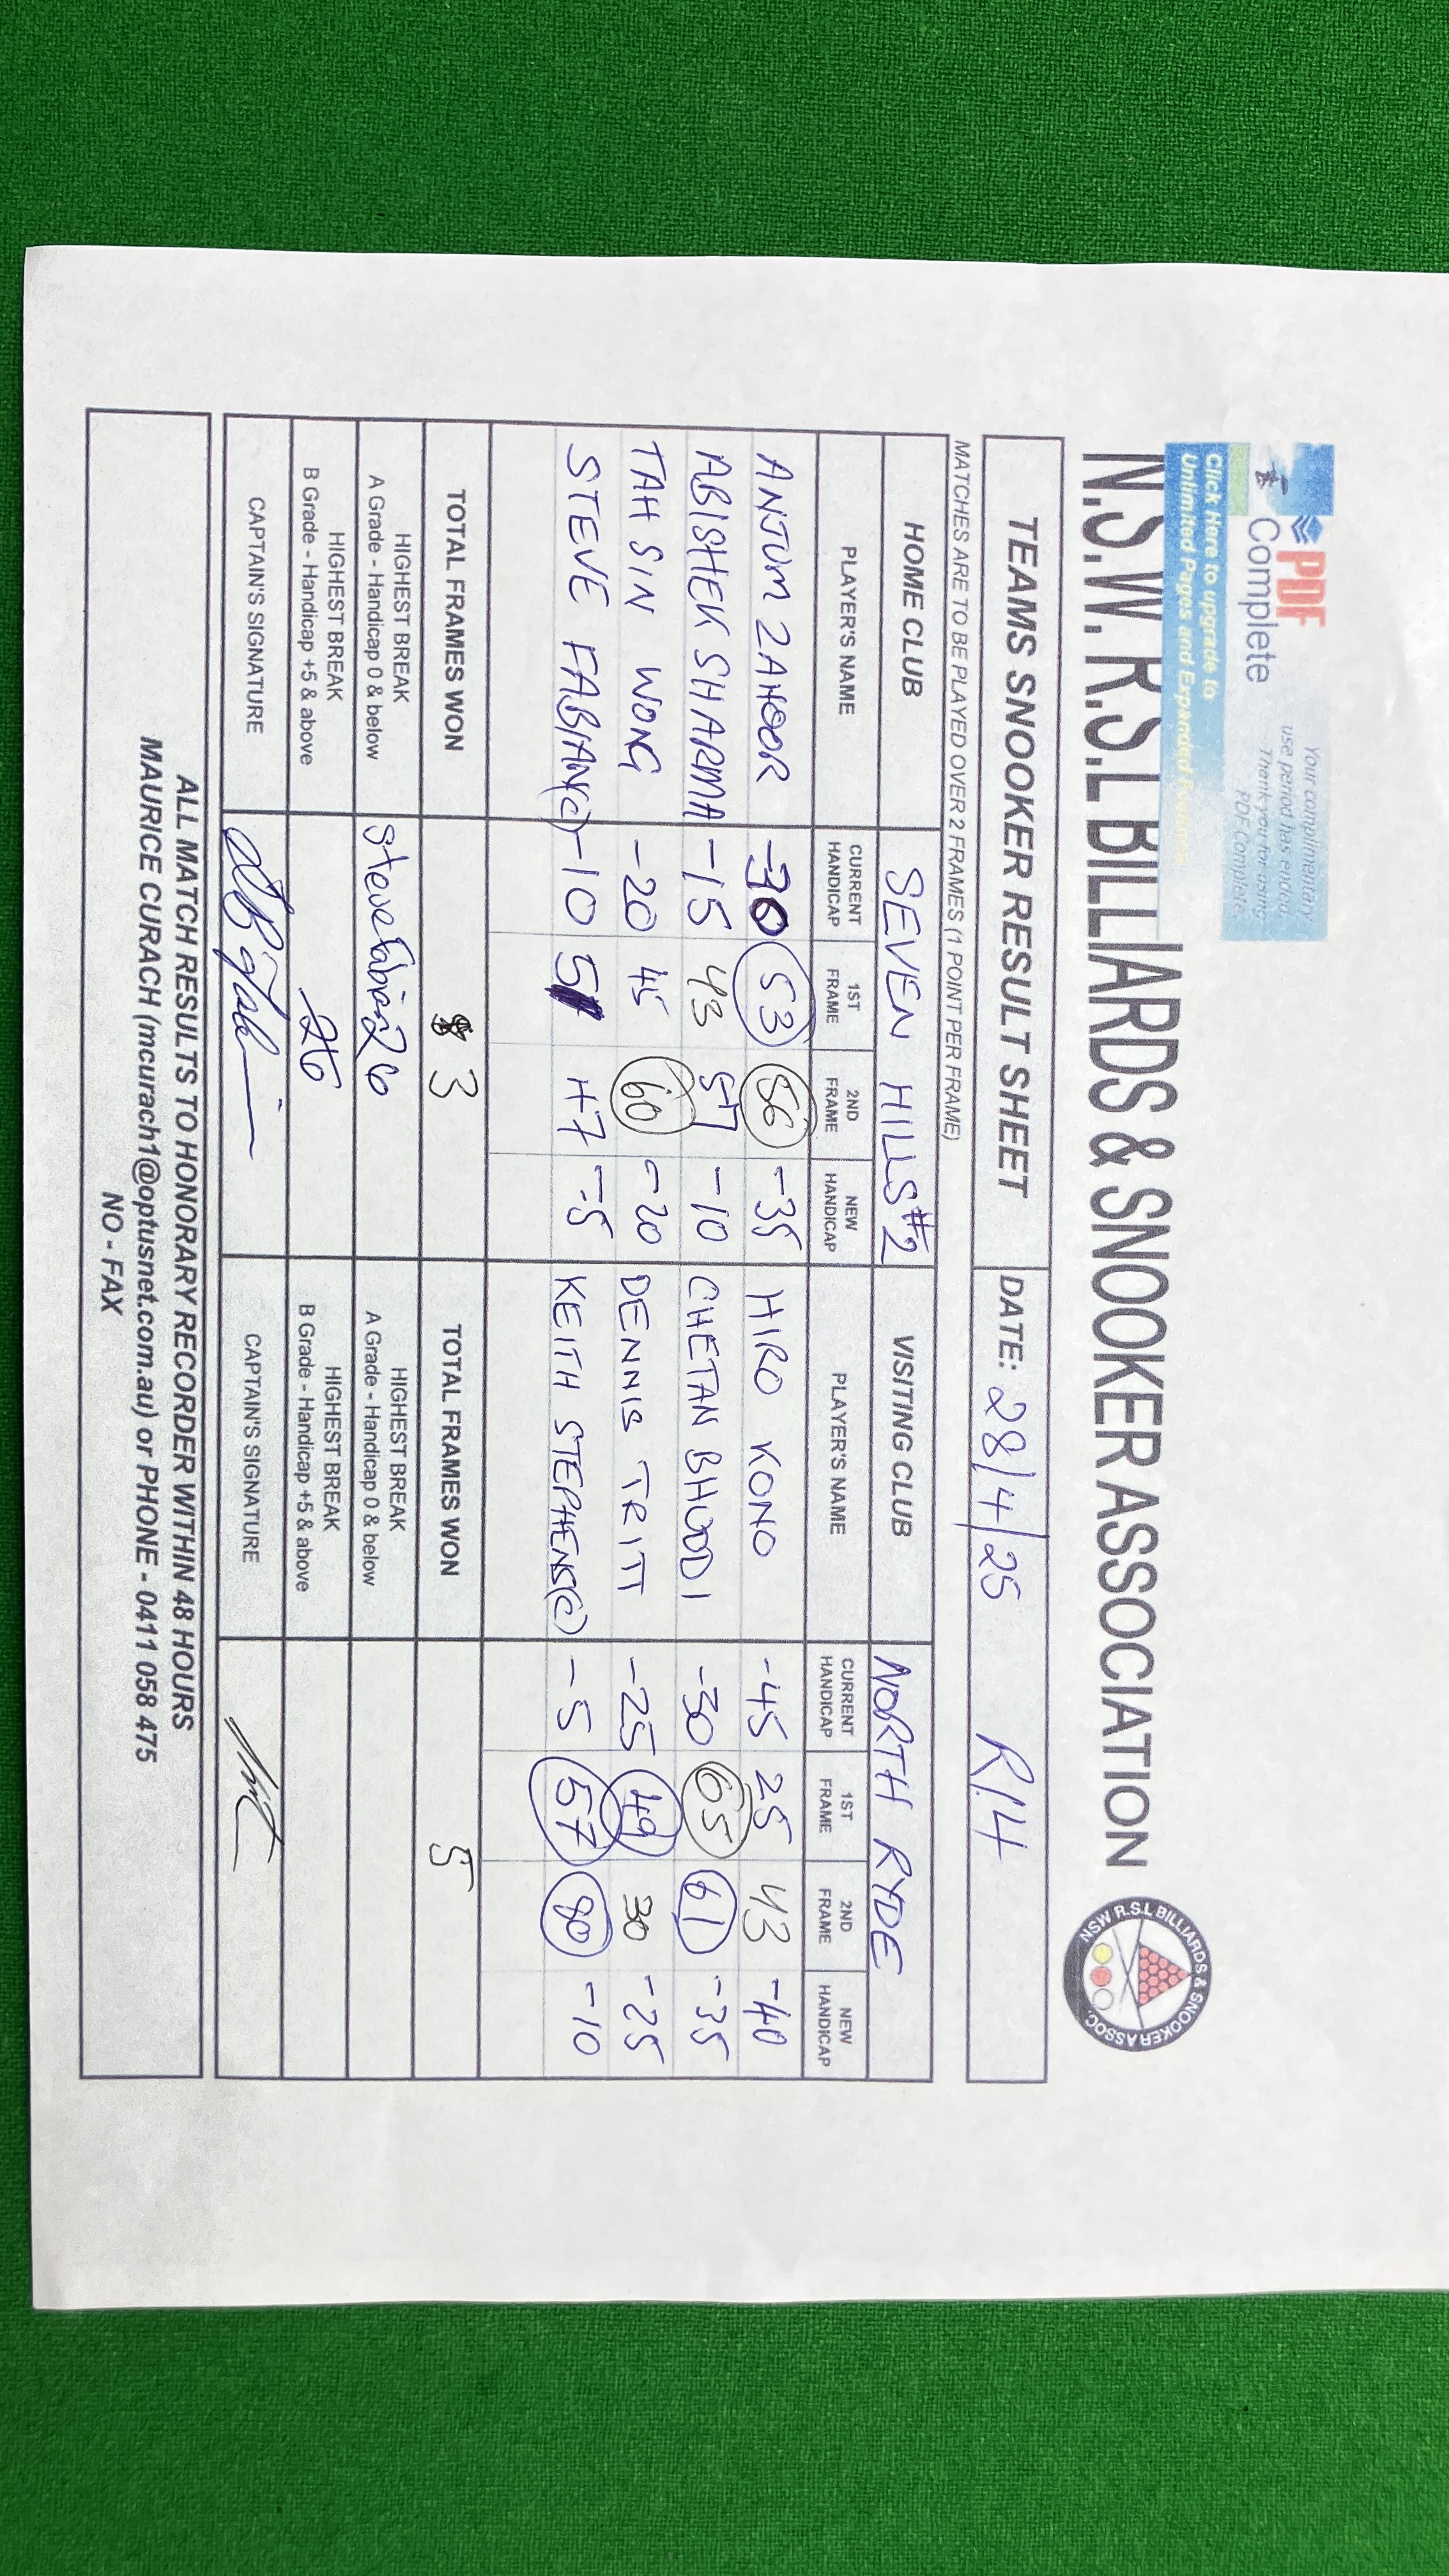 PDF
Complete
Your complimentary
use period has ended.
Thank you for using
PDF Complete.
Click Here to upgrade to
Unlimited Pages and Expanded Features
N.S.W. R.S.L BILLIARDS & SNOOKER ASSOCIATION
NSW R.S.L BILLIARDS & SNOOKER ASSOC.
TEAMS SNOOKER RESULT SHEET DATE: 28/4/25 R14
MATCHES ARE TO BE PLAYED OVER 2 FRAMES (1 POINT PER FRAME)
HOME CLUB SEVEN HILLS #2 VISITING CLUB NORTH RYDE
PLAYER'S NAME CURRENT HANDICAP 1ST FRAME 2ND FRAME NEW HANDICAP PLAYER'S NAME CURRENT HANDICAP 1ST FRAME 2ND FRAME NEW HANDICAP
ANJUM ZAHOOR -30 53 56 -35 HIRO KONO -45 25 43 -40
ABISHEK SHARMA -15 43 57 -10 CHETAN BHUDDI -30 65 61 -35
TAH SIN WONG -20 45 60 -20 DENNIS TRITT -25 49 30 -25
STEVE FABIAN(C) -10 5 47 -5 KEITH STEPHENS(C) -5 57 80 -10
TOTAL FRAMES WON 3 TOTAL FRAMES WON 5
HIGHEST BREAK
A Grade - Handicap 0 & below Steve Fabian 26 HIGHEST BREAK
A Grade - Handicap 0 & below
HIGHEST BREAK
B Grade - Handicap +5 & above 26 HIGHEST BREAK
B Grade - Handicap +5 & above
CAPTAIN'S SIGNATURE CAPTAIN'S SIGNATURE
ALL MATCH RESULTS TO HONORARY RECORDER WITHIN 48 HOURS
MAURICE CURACH (mcurach1@optusnet.com.au) or PHONE - 0411 058 475
NO - FAX